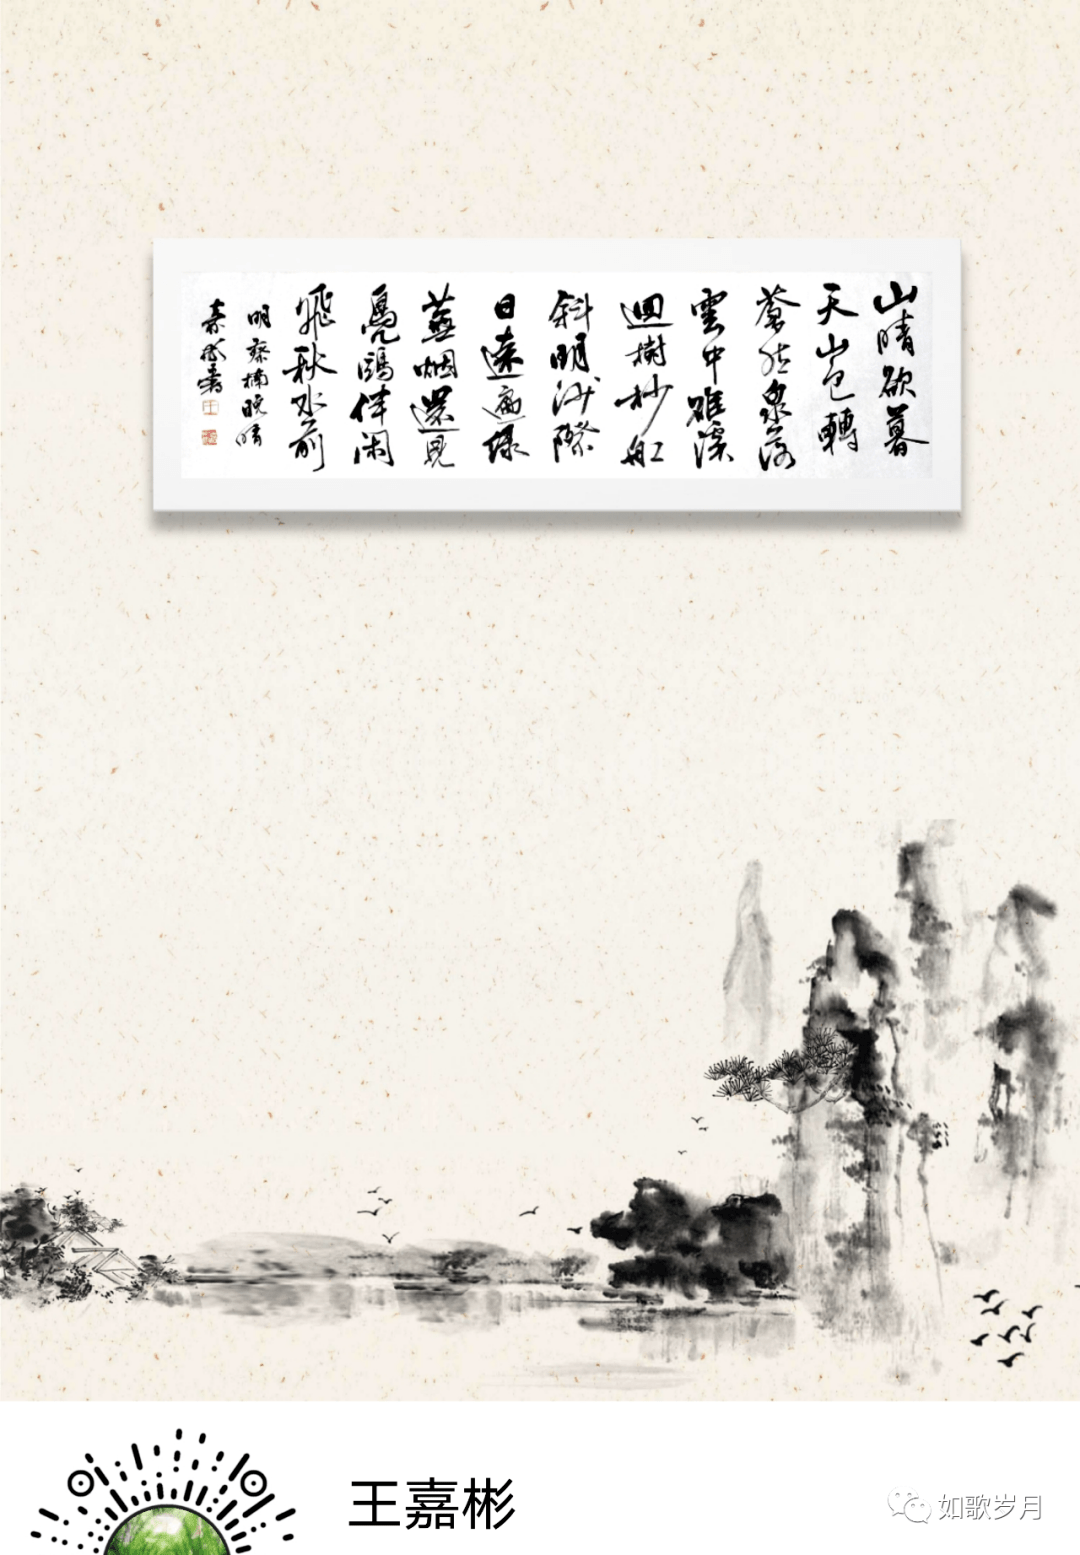 山晴欲暮
天山色轉
蒼然泉落
雲中碓溪
迴樹杪船
斜明沙際
日遠遍綠
蕪烟還見
鳧鷗伴閑
飛秋水前
明蔡楠晚晴
嘉彬書
王嘉彬
如歌岁月